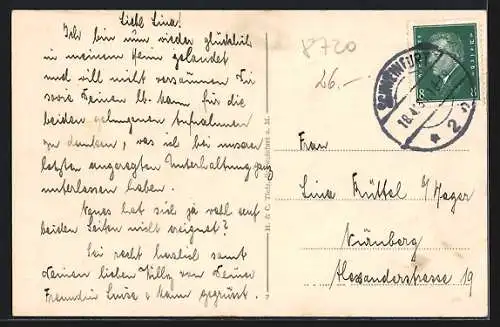 Liebe Lina!
Ich bin nun wieder glücklich
in meinem Heim gelandet
und will nicht versäumen Dir
sowie Deinem lb. Mann für die
beiden gelungenen Aufnahmen
zu danken, was ich bei unserer
letzten angeregten Unterhaltung ganz
unterlassen habe.
Neues hat sich ja wohl auf
beiden Seiten nicht ereignet?
Sei recht herzlich samt
Deinem lieben Willy von Deiner
Freundin Luise u. Mann gegrüsst.
8720
26.-
SCHWEINFURT
18.4.
* 2
8
H. & C. Tietz, Schweinfurt a. M.
Frau
Lina Rüttel b/ Hager
Nürnberg
Alexanderstrasse 19